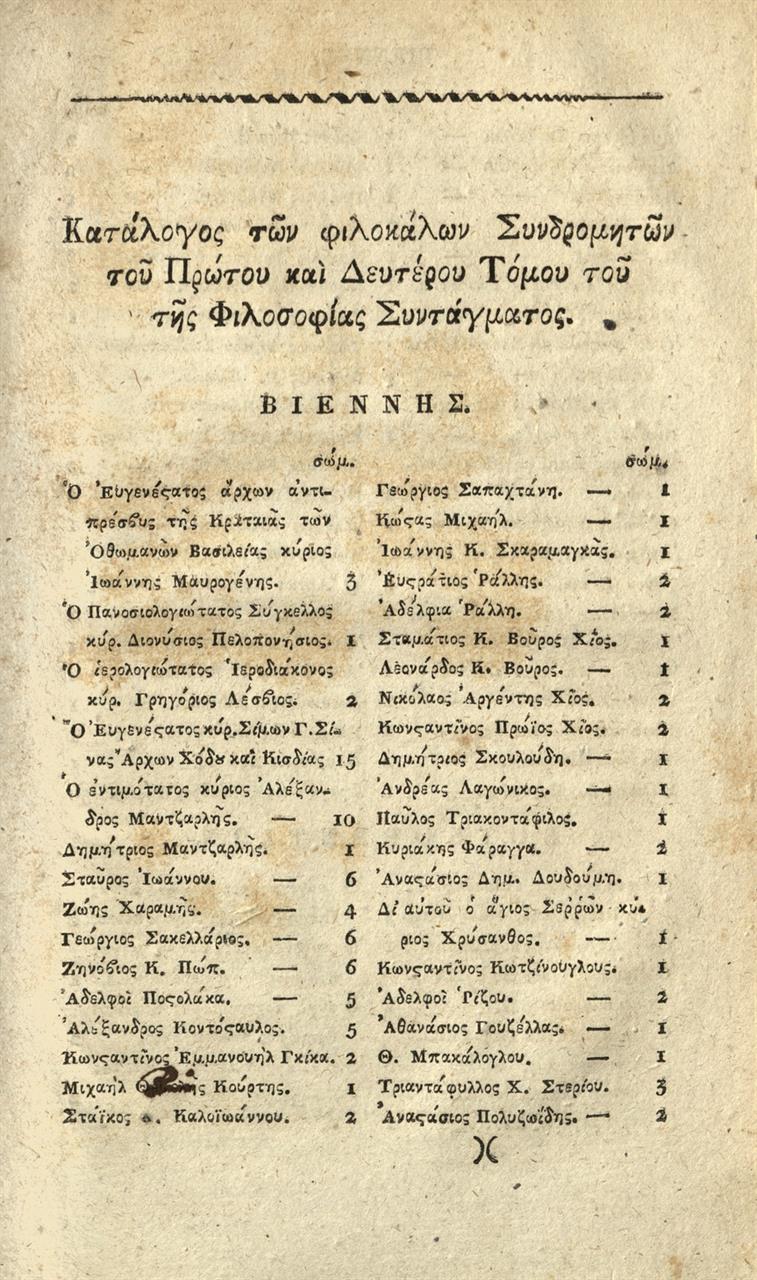 Κατάλογος τῶν φιλοκάλων Συνδρομητῶν
τοῦ Πρώτου καὶ Δευτέρου Τόμου τοῦ
τῆς Φιλοσοφίας Συντάγματος.
ΒΙΕΝΝΗΣ.
σώμ.
Ὁ Ἐυγενέϛατος ἄρχων ἀντι-
πρέσβυς τῆς Κραταιᾶς τῶν
Ὀθωμανῶν Βασιλείας κύριος
Ἰωάννης Μαυρογένης. 3
Ὁ Πανοσιολογιώτατος Σύγκελλος
κύρ. Διονύσιος Πελοπονήσιος. 1
Ὁ ἱερολογιώτατος Ἱεροδιάκονος
κύρ. Γρηγόριος Λέσβιος. 2
Ὁ Ἐυγενέϛατος κύρ. Σίμων Γ. Σί-
νας Ἄρχων Χόδȣ καὶ Κισδίας 15
Ὁ ἐντιμότατος κύριος Ἀλέξαν-
δρος Μαντζαρλῆς. — 10
Δημήτριος Μαντζαρλῆς. 1
Σταῦρος Ἰωάννου. — 6
Ζώης Χαραμῆς. — 4
Γεώργιος Σακελλάριος. — 6
Ζηνόβιος Κ. Πώπ. — 6
Ἀδελφοὶ Ποϛολάκα. — 5
Ἀλέξανδρος Κοντόϛαυλος. 5
Κωνϛαντῖνος Ἐμμανουὴλ Γκίκα. 2
Μιχαὴλ Κούρτης. 1
Στάϊκος Καλοϊωάννου. 2
σώμ.
Γεώργιος Σαπαχτάνη. — 1
Κώϛας Μιχαήλ. — 1
Ἰωάννης Κ. Σκαραμαγκᾶς. 1
Ἐυϛράτιος Ῥάλλης. — 2
Ἀδέλφια Ῥάλλη. — 2
Σταμάτιος Κ. Βοῦρος Χῖος. 1
Λεονάρδος Κ. Βοῦρος. — 1
Νικόλαος Ἀργέντης Χῖος. 2
Κωνϛαντῖνος Πρώϊος Χῖος. 2
Δημήτριος Σκουλούδη. — 1
Ἀνδρέας Λαγώνικος. — 1
Παῦλος Τριακοντάφιλος. 1
Κυριάκης Φάραγγα. — 2
Ἀναϛάσιος Δημ. Δουδούμη. 1
Δι' αὐτοῦ ὁ ἅγιος Σεῤῥῶν κύ-
ριος Χρύσανθος. — 1
Κωνϛαντῖνος Κωτζίνουγλους. 1
Ἀδελφοὶ Ῥίζου. — 2
Ἀθανάσιος Γουζέλλας. — 1
Θ. Μπακάλογλου. — 1
Τριαντάφυλλος Χ. Στερίου. 3
Ἀναϛάσιος Πολυζωΐδης. — 2
)(